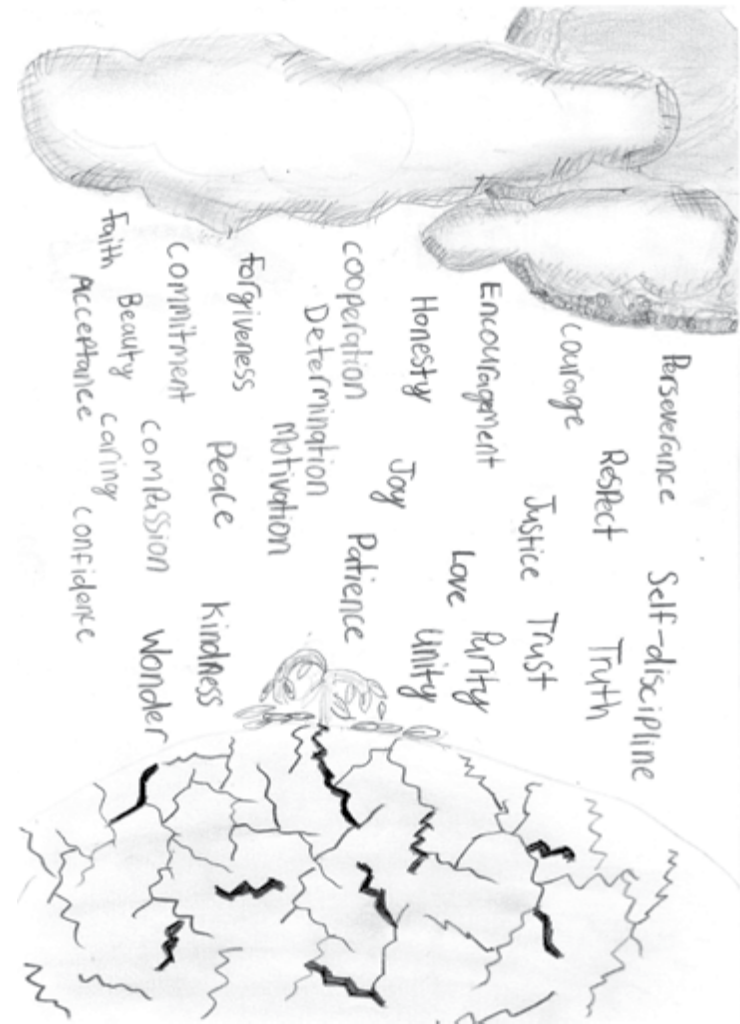 Perseverance
Self-discipline
Respect
Truth
Courage
Justice
Trust
Encouragement
Purity
Love
Honesty
Unity
Joy
Patience
Cooperation
Determination
Motivation
Forgiveness
Peace
Kindness
Commitment
Compassion
Wonder
Beauty
Faith
Caring
Acceptance
Confidence